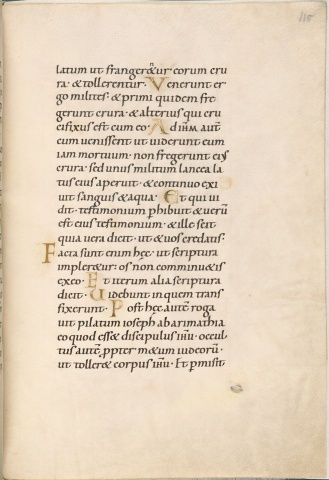 110
latum ut frangerẽur · eorum cru
ra · & tollerentur · Venerunt er
go milites · & primi quidem fre
gerunt crura · & alterius qui cru
cifixus est cum eo · Ad ihm̄ aut̄
cum uenissent ut uiderunt eum
iam mortuum · non fregerunt eius
crura · sed unus militum lancea la
tus eius aperuit · & continuo exi
uit sanguis & aqua · Et qui ui
dit · testimonium phibuit & uerū
est eius testimonium · & ille scit
quia uera dicit · ut & uos credatis ·
Facta sunt enim hęc · ut scriptura
impler&ur · os non comminu&is
ex eo · Et iterum alia scriptura
dicit · Uidebunt in quem trans
fixerunt · Post hęc autē roga
uit pilatum ioseph ab arimathia
eo quod ess& discipulus ihū · occul
tus autē ppter m&um iudeorū ·
ut toller& corpus ihū · Et pmisit